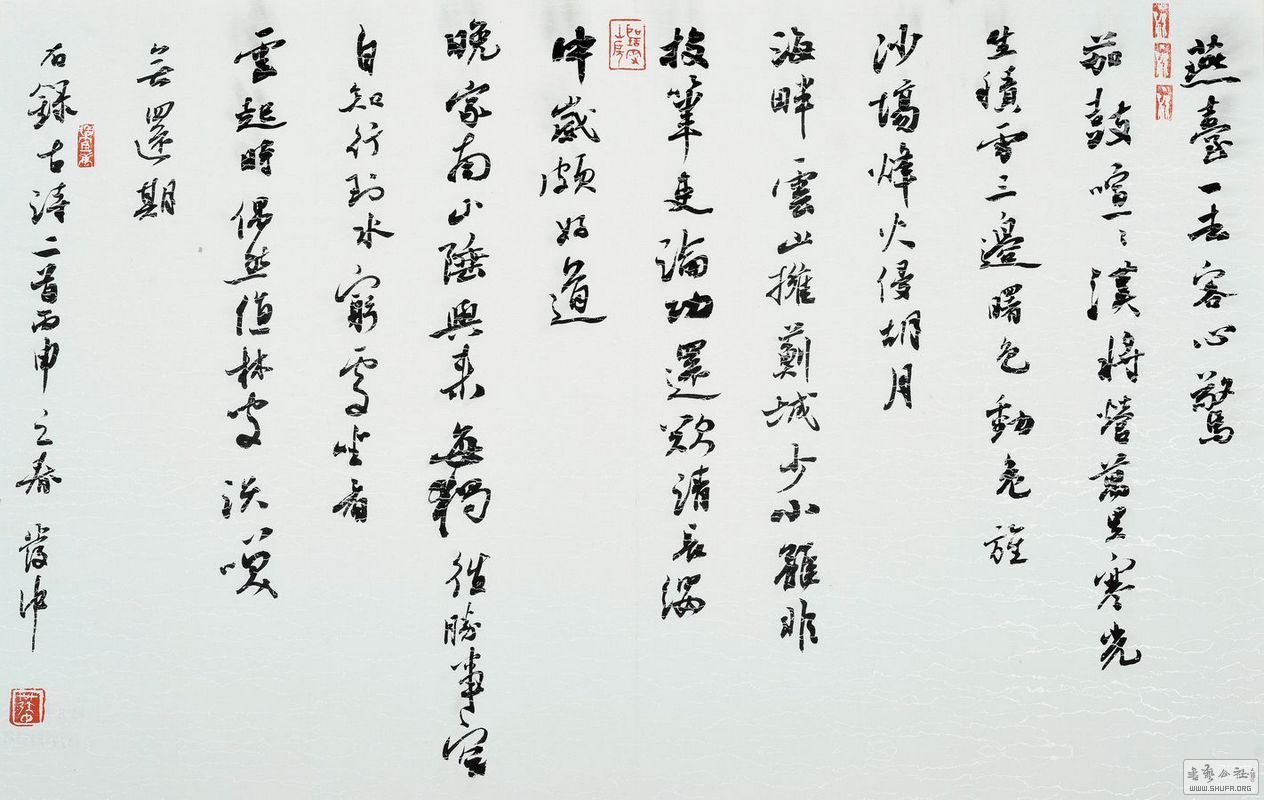 燕臺一去客心驚
笳鼓喧〻漢將營萬里寒光
生積雪三邊曙色動危旌
沙場烽火侵胡月
海畔雲山擁薊城少小雖非
投筆吏論功還欲請長纓
中歲頗好道
晚家南山陲興來每獨往勝事空
自知行到水窮處坐看
雲起時偶然值林叟談笑
無還期
右錄古詩二首丙申之春
书艺公社
WWW.SHUFA.ORG